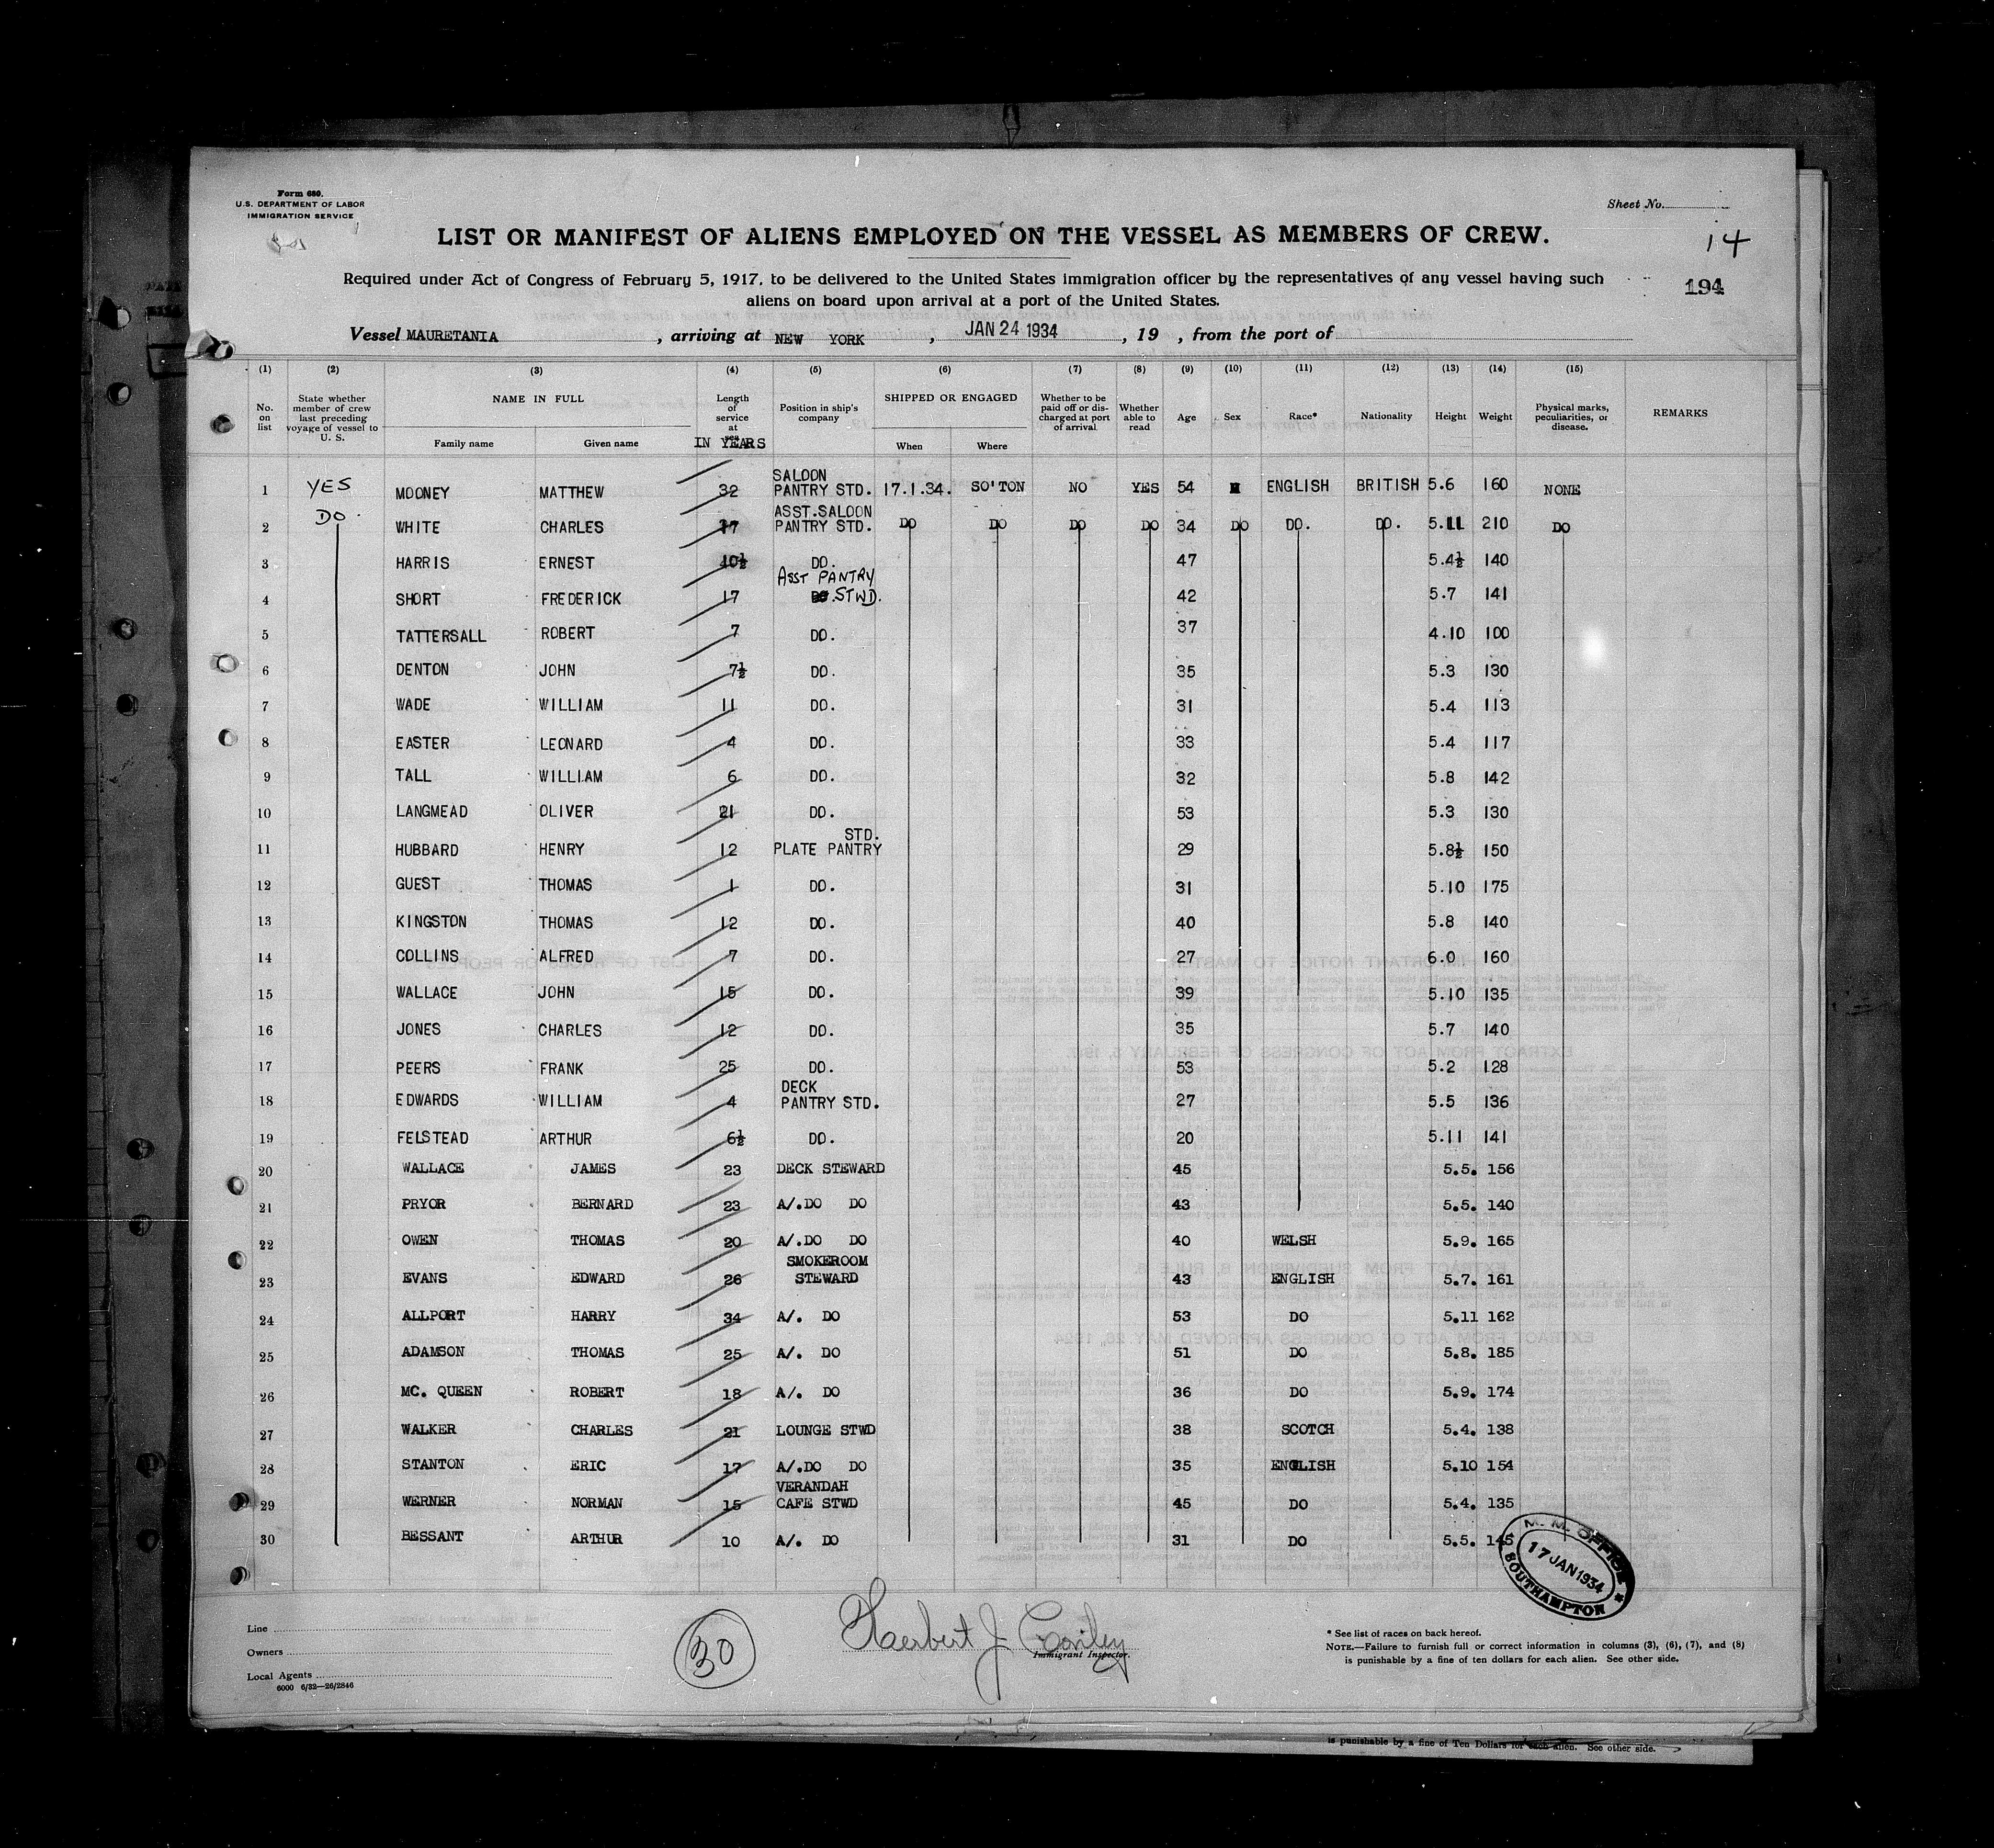 Form 680.
U.S. DEPARTMENT OF LABOR
IMMIGRATION SERVICE
Sheet No.
14
194
LIST OR MANIFEST OF ALIENS EMPLOYED ON THE VESSEL AS MEMBERS OF CREW.
Required under Act of Congress of February 5, 1917, to be delivered to the United States immigration officer by the representatives of any vessel having such
aliens on board upon arrival at a port of the United States.
Vessel MAURETANIA, arriving at NEW YORK, JAN 24 1934, 19 , from the port of
(1) (2) (3) (4) (5) (6) (7) (8) (9) (10) (11) (12) (13) (14) (15)
No. on list State whether member of crew last preceding voyage of vessel to U. S. NAME IN FULL Family name Given name Length of service at IN YEARS Position in ship's company SHIPPED OR ENGAGED When Where Whether to be paid off or discharged at port of arrival Whether able to read Age Sex Race* Nationality Height Weight Physical marks, peculiarities, or disease. REMARKS
1 YES MOONEY MATTHEW 32 SALOON PANTRY STD. 17.1.34. SO'TON NO YES 54 M ENGLISH BRITISH 5.6 160 NONE
2 DO. WHITE CHARLES 17 ASST.SALOON PANTRY STD. DO DO DO DO 34 DO DO. DO. 5.11 210 DO
3 HARRIS ERNEST 10½ DO. 47 5.4½ 140
4 SHORT FREDERICK 17 ASST PANTRY STWD. 42 5.7 141
5 TATTERSALL ROBERT 7 DO. 37 4.10 100
6 DENTON JOHN 7½ DO. 35 5.3 130
7 WADE WILLIAM 11 DO. 31 5.4 113
8 EASTER LEONARD 4 DO. 33 5.4 117
9 TALL WILLIAM 6 DO. 32 5.8 142
10 LANGMEAD OLIVER 21 DO. 53 5.3 130
11 HUBBARD HENRY 12 STD. PLATE PANTRY 29 5.8½ 150
12 GUEST THOMAS 1 DO. 31 5.10 175
13 KINGSTON THOMAS 12 DO. 40 5.8 140
14 COLLINS ALFRED 7 DO. 27 6.0 160
15 WALLACE JOHN 15 DO. 39 5.10 135
16 JONES CHARLES 12 DO. 35 5.7 140
17 PEERS FRANK 25 DO. 53 5.2 128
18 EDWARDS WILLIAM 4 DECK PANTRY STD. 27 5.5 136
19 FELSTEAD ARTHUR 6½ DO. 20 5.11 141
20 WALLACE JAMES 23 DECK STEWARD 45 5.5. 156
21 PRYOR BERNARD 23 A/.DO DO 43 5.5. 140
22 OWEN THOMAS 20 A/.DO DO 40 WELSH 5.9. 165
23 EVANS EDWARD 26 SMOKEROOM STEWARD 43 ENGLISH 5.7. 161
24 ALLPORT HARRY 34 A/. DO 53 DO 5.11 162
25 ADAMSON THOMAS 25 A/. DO 51 DO 5.8. 185
26 MC. QUEEN ROBERT 18 A/. DO 36 DO 5.9. 174
27 WALKER CHARLES 21 LOUNGE STWD 38 SCOTCH 5.4. 138
28 STANTON ERIC 17 A/.DO DO 35 ENGLISH 5.10 154
29 WERNER NORMAN 15 VERANDAH CAFE STWD 45 DO 5.4. 135
30 BESSANT ARTHUR 10 A/. DO 31 DO 5.5. 145
M. M. OFFICE
17 JAN 1934
SOUTHAMPTON
Line
Owners
Local Agents
6000 6/32—26/2846
30
Herbert J.
Immigrant Inspector.
* See list of races on back hereof.
NOTE.—Failure to furnish full or correct information in columns (3), (6), (7), and (8)
is punishable by a fine of ten dollars for each alien. See other side.
is punishable by a fine of Ten Dollars for each alien. See other side.